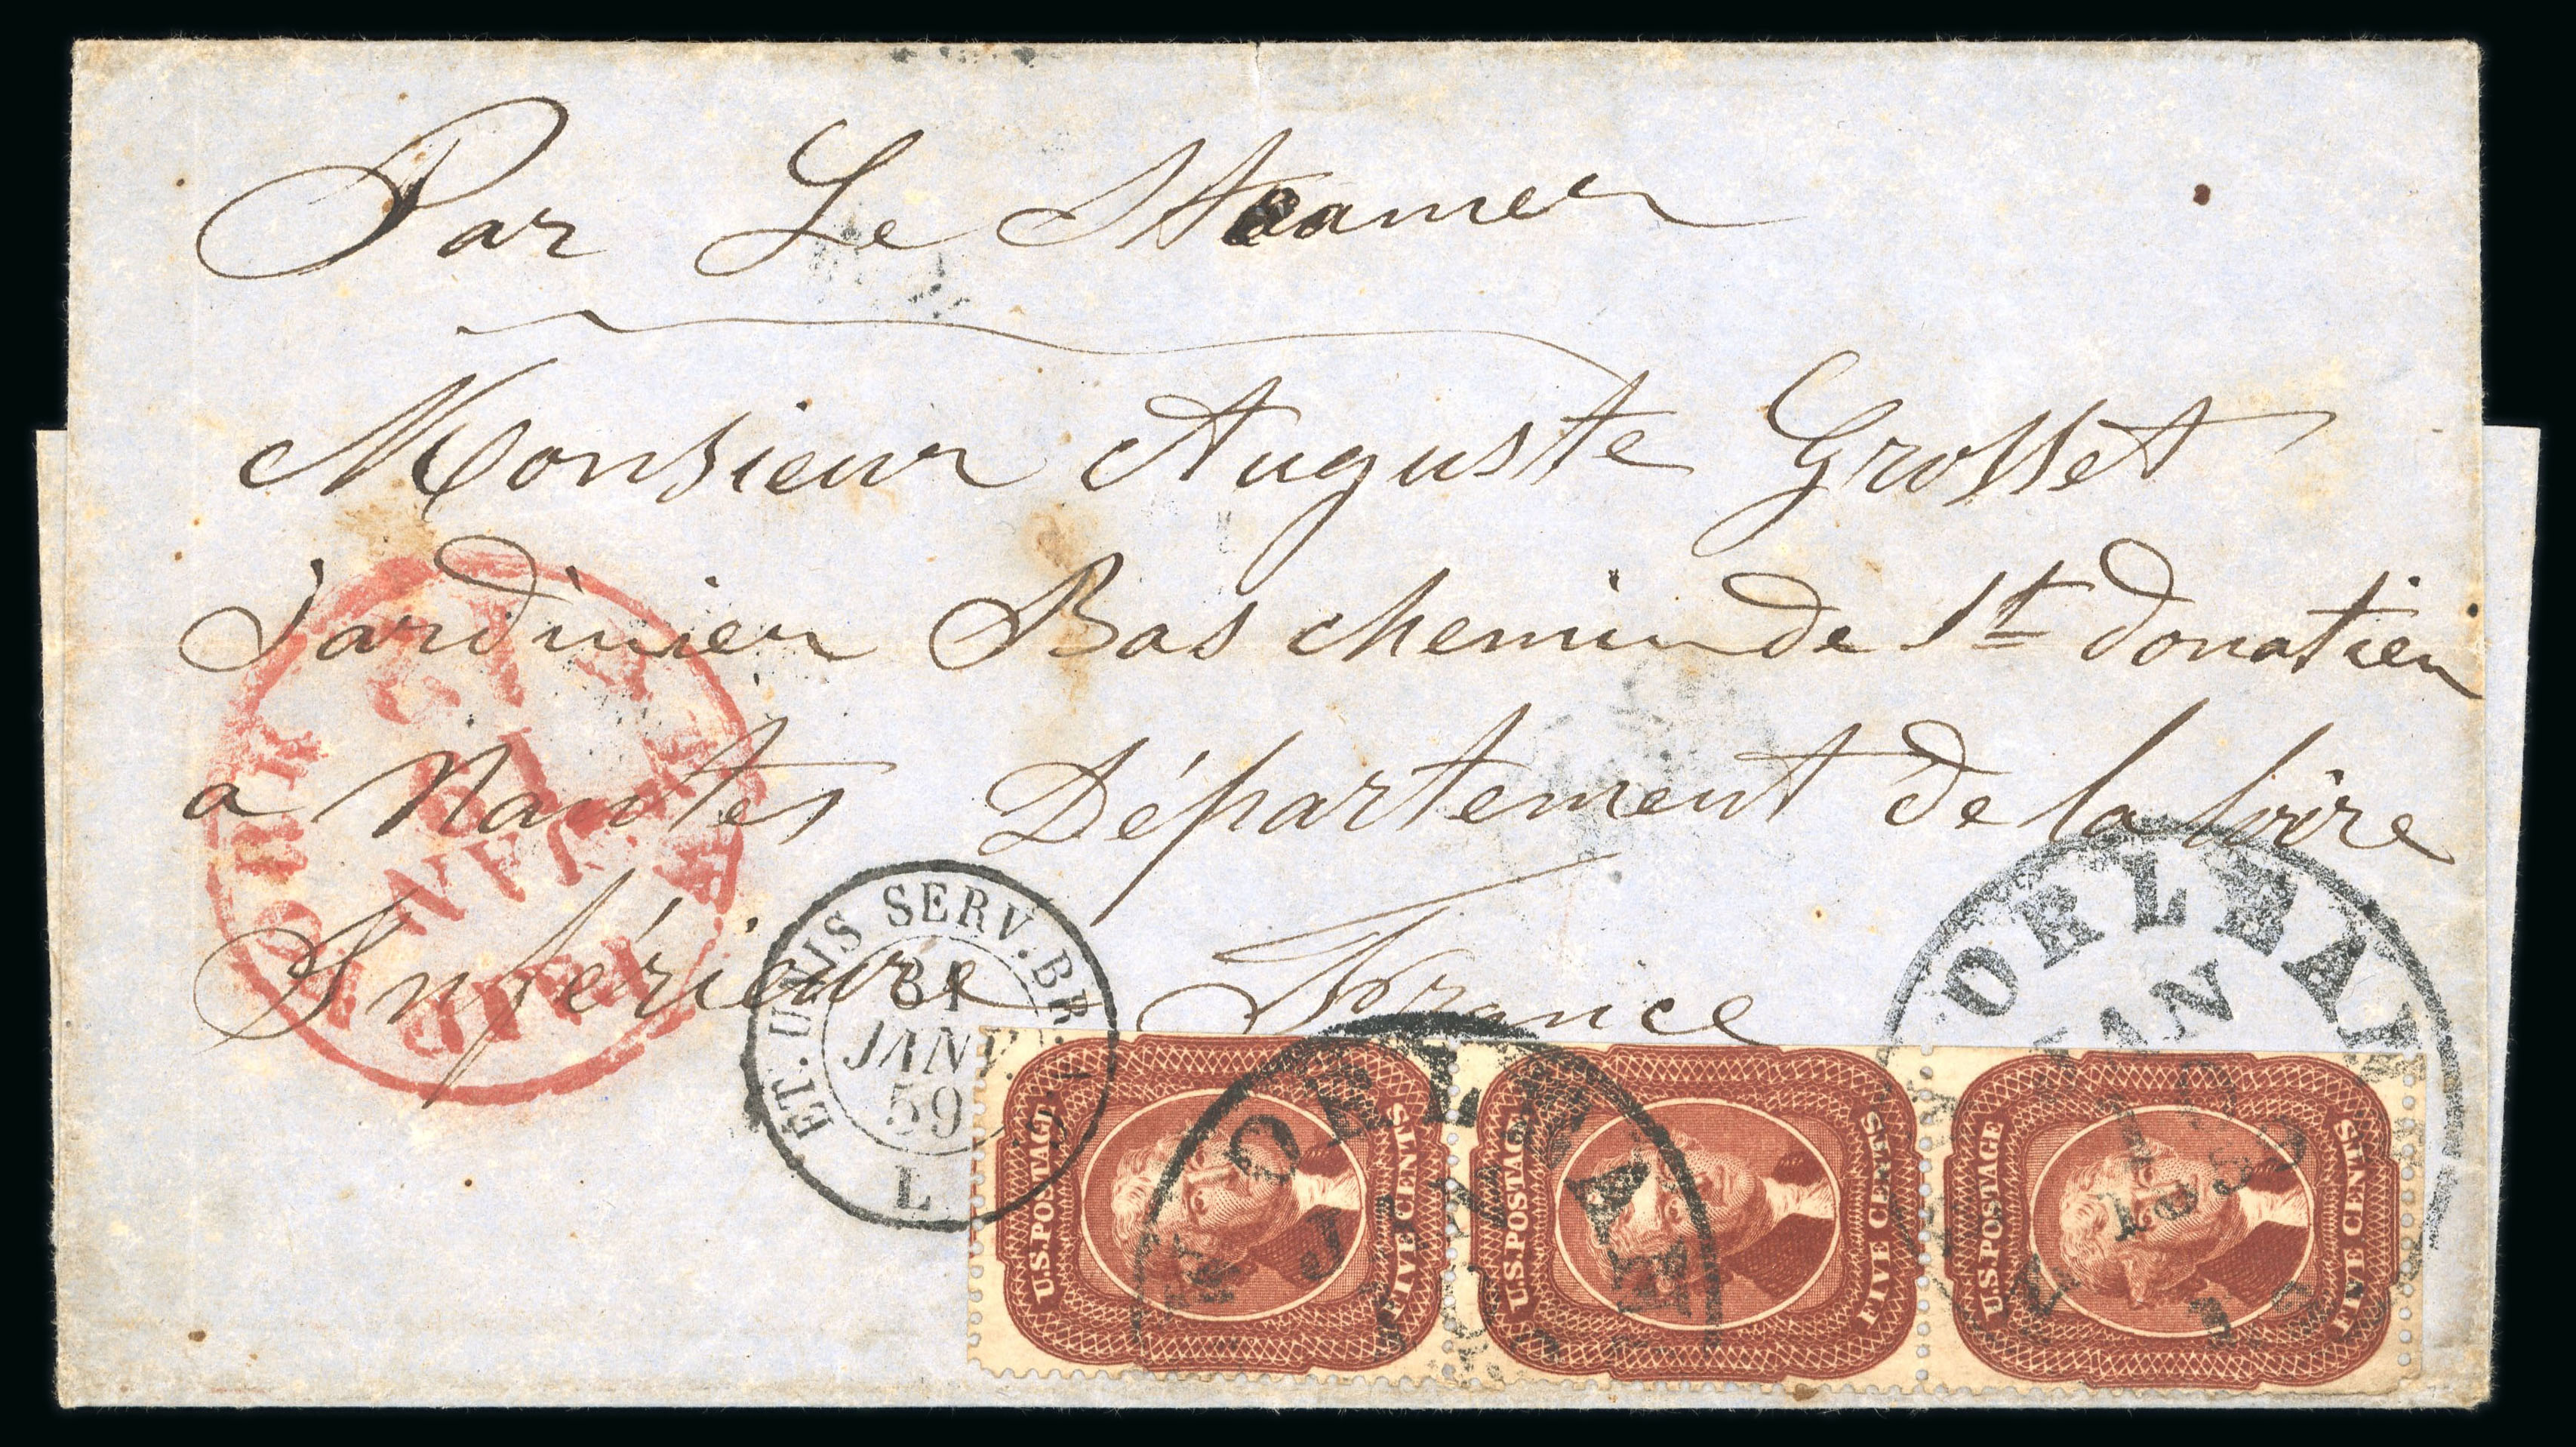 Par Le Steamer
Monsieur Auguste Grosset
Jardinier Bas chemin de St donatien
a Nantes Département de la loire
Inférieure
France
ET. UNIS SERV. BR.
31
JANV.
59
L
ORLEAN
JAN
1859
ORLEA
U.S. POSTAGE
FIVE CENTS
U.S. POSTAGE
FIVE CENTS
U.S. POSTAGE
FIVE CENTS
JAN
PAID